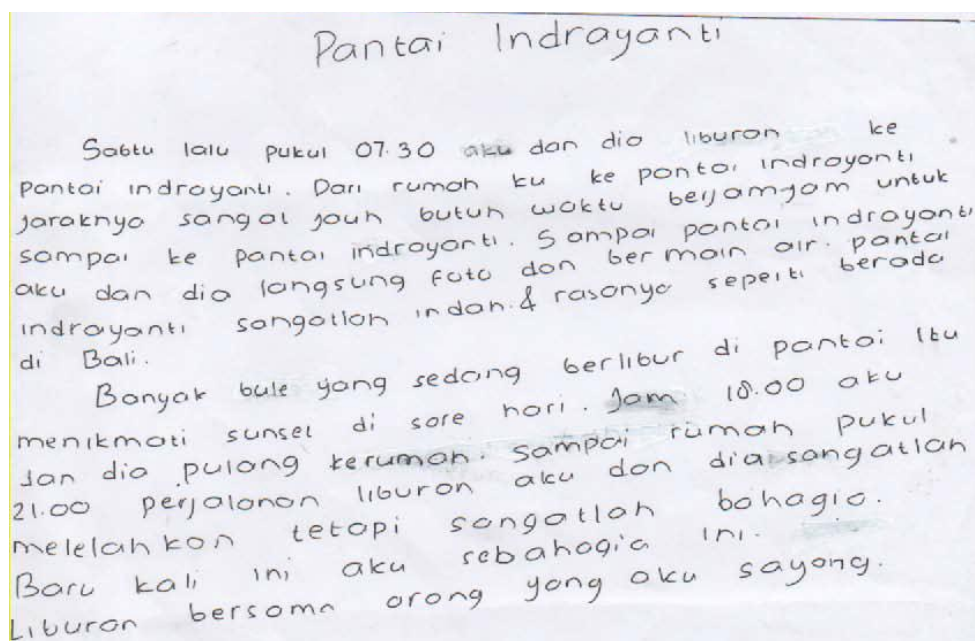 Pantai Indrayanti
Sabtu lalu pukul 07.30 aku dan dia liburan ke
pantai indrayanti. Dari rumah ku ke pantai indrayanti
jaraknya sangat jauh butuh waktu berjamjam untuk
sampai ke pantai indrayanti. Sampai pantai indrayanti
aku dan dia langsung foto dan bermain air. pantai
indrayanti sangatlah indah & rasanya seperti berada
di Bali.
Banyak bule yang sedang berlibur di pantai itu
menikmati sunset di sore hari. Jam 18.00 aku
dan dia pulang kerumah. sampai rumah pukul
21.00 perjalanan liburan aku dan dia sangatlah
melelahkan tetapi sangatlah bahagia.
Baru kali ini aku sebahagia ini.
Liburan bersama orang yang aku sayang.